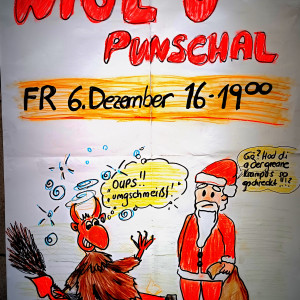 PUNSCHAL
FR 6. Dezember 16-19⁰⁰
OUPS!!
umgschmeißt!
Gö? Hod di
a der greane
Krampus so
gschreckt!!?